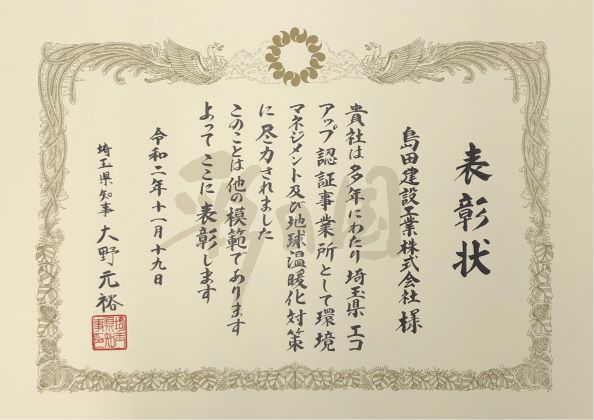 表彰状
島田建設工業株式会社 様
貴社は多年にわたり埼玉県エコ
アップ認証事業所として環境
マネジメント及び地球温暖化対策
に尽力されました
このことは他の模範であります
よってここに表彰します
令和二年十一月十九日
埼玉県知事 大野元裕